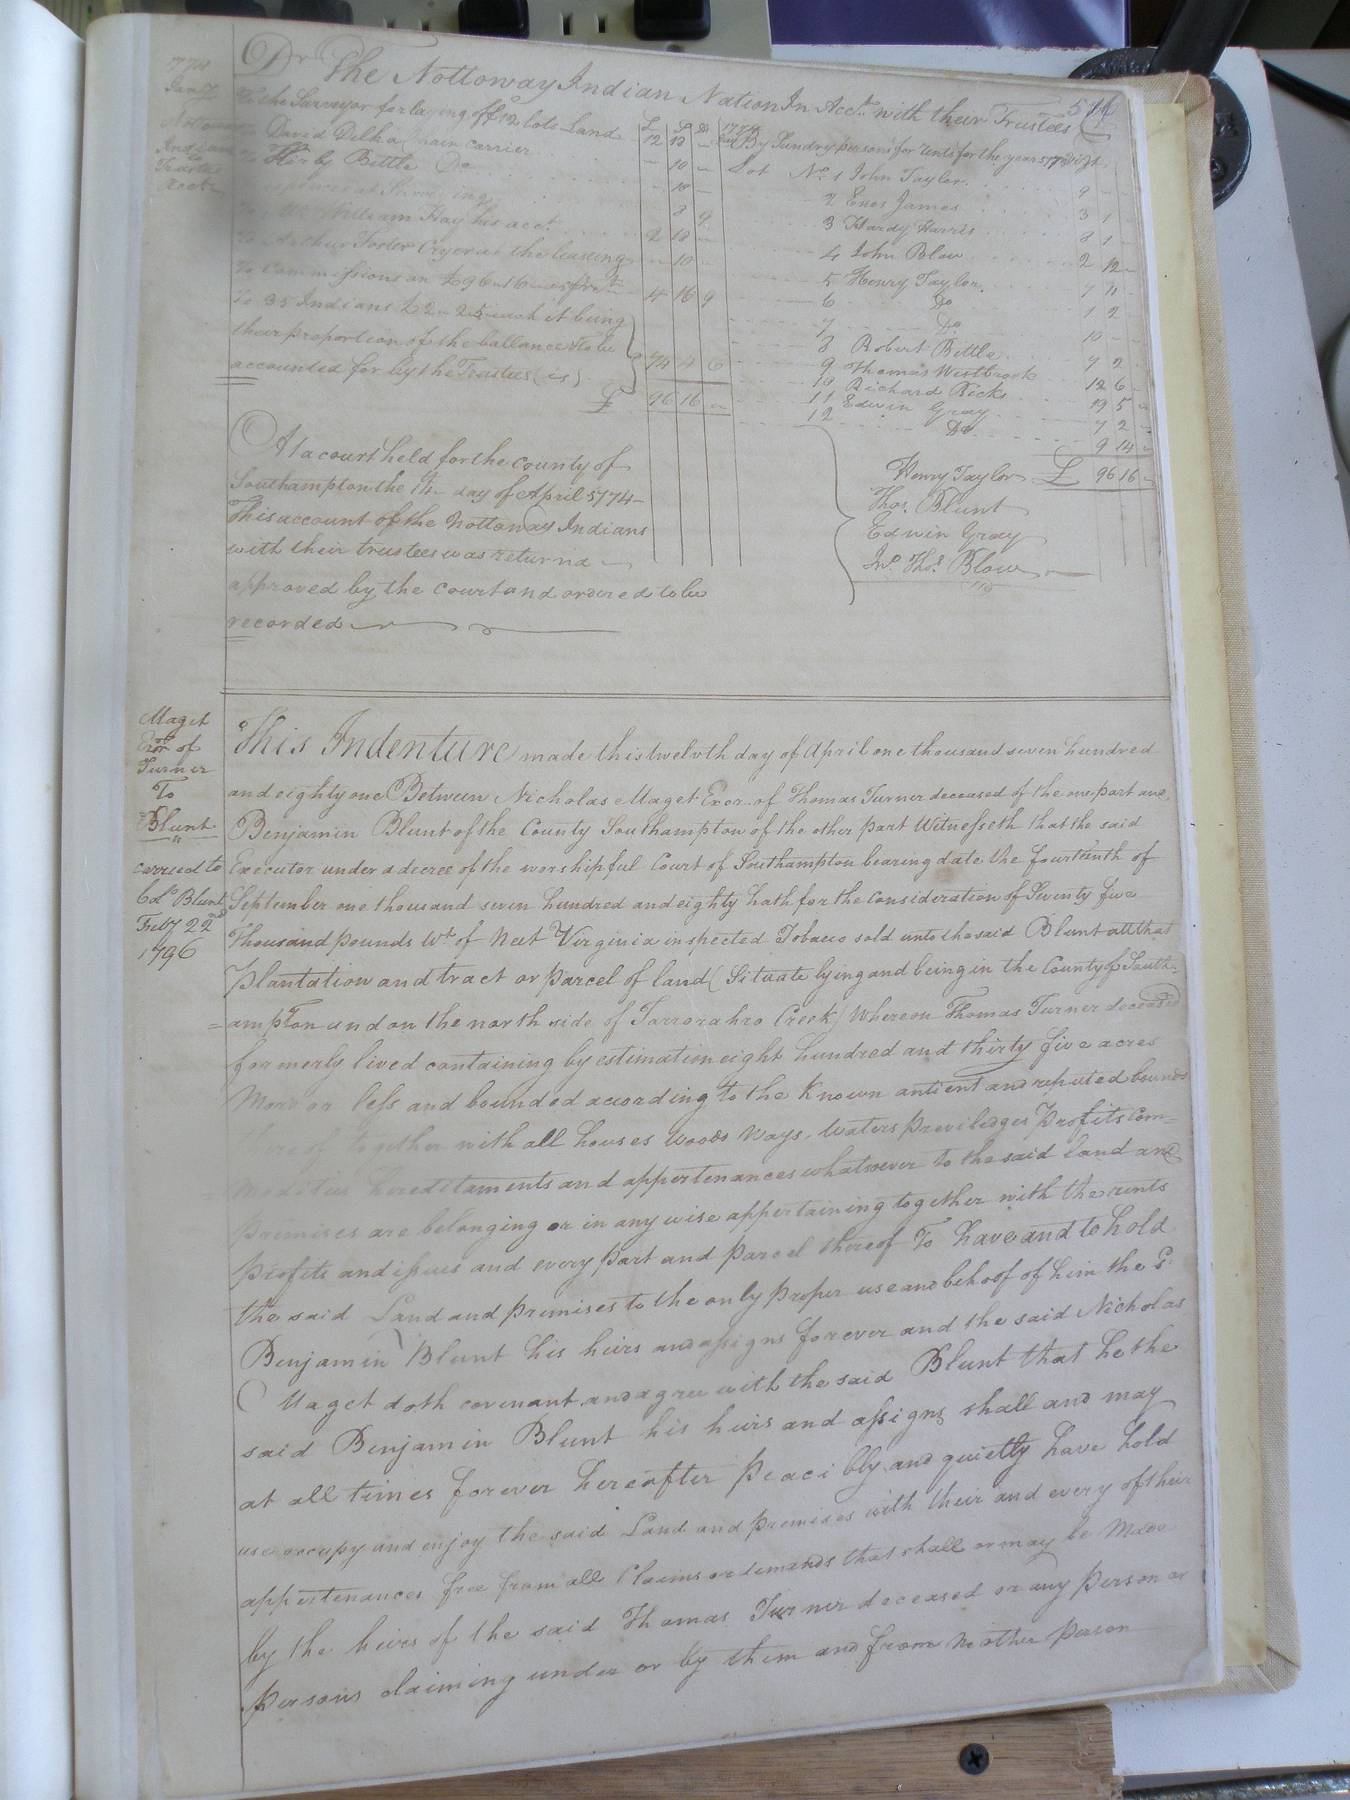 Dr The Nottoway Indian Nation In Acct. with their Trustees
1774
Jany
Nottoway
Indians
Trustees
Acct
£ S D
To the Surveyor for laying off 12 lots Land 12 12 –
David Delha Chain carrier – 10 –
Kirby Bittle Do – 10 –
8 9
To Mr. William Hay his acct. 2 10 –
To Arthur Foster Cryer at the leasing – 10 –
To Commissions on £96 16 4 16 9
To 35 Indians £2 2 5 each it being
their proportion of the ballance to be
accounted for by the Trustees (is) 74
£ 96 16 –
1774
By Sundry persons for rents for the year 1773 Vizt.
Lot No. 1 John Taylor 9 – –
2 Enos James 3 1 –
3 Hardy Harris 8 1 –
4 John Blow 2 12 –
5 Henry Taylor 7 11 –
6 Do 1 2
7 Do 10 –
8 Robert Bittle 7 2
9 Thomas Westbrook 12 6
10 Richard Ricks 19 5
11 Edwin Gray 7 2
12 Do 9 14
£ 96 16 –
Henry Taylor
Thos. Blunt
Edwin Gray
Jno. Thos. Blow
At a court held for the county of
Southampton the 14 day of April 1774
This account of the Nottoway Indians
with their trustees was returnd
approved by the Court and ordered to be
recorded
Maget
Exor of
Turner
To
Blunt
carried to
Col Blunt
Feby 22nd
1796
This Indenture made this twelvth day of April one thousand seven hundred
and eighty one Between Nicholas Maget Exor of Thomas Turner deceased of the one part and
Benjamin Blunt of the County Southampton of the other part Witnesseth that the said
Executor under a decree of the worshipful Court of Southampton bearing date the fourteenth of
September one thousand seven hundred and eighty hath for the Consideration of Seventy five
Thousand pounds Wt of Neet Virginia inspected Tobacco sold unto the said Blunt all that
Plantation and tract or parcel of land (Situate lying and being in the County of South-
=ampton and on the north side of Tarrorahro Creek) Whereon Thomas Turner deceased
formerly lived containing by estimation eight hundred and thirty five acres
More or less and bounded according to the Known antient and reputed bounds
thereof together with all houses woods ways, waters priviledges Profits Com=
=modities hereditaments and appertenances whatsoever to the said land and
premises are belonging or in any wise appertaining together with the rents
profits and issues and every Part and Parcel thereof To have and to hold
the said Land and premises to the only proper use and behoof of him the Sd
Benjamin Blunt his heirs and assigns forever and the said Nicholas
Maget doth covenant and agree with the said Blunt that he the
said Benjamin Blunt his heirs and assigns shall and may
at all times forever hereafter peacibly and quietly have hold
use occupy and enjoy the said Land and premises with their and every of their
appertenances free from all Claims or demands that shall or may be Made
by the heirs of the said Thomas Turner deceased or any person or
persons claiming under or by them and from no other person